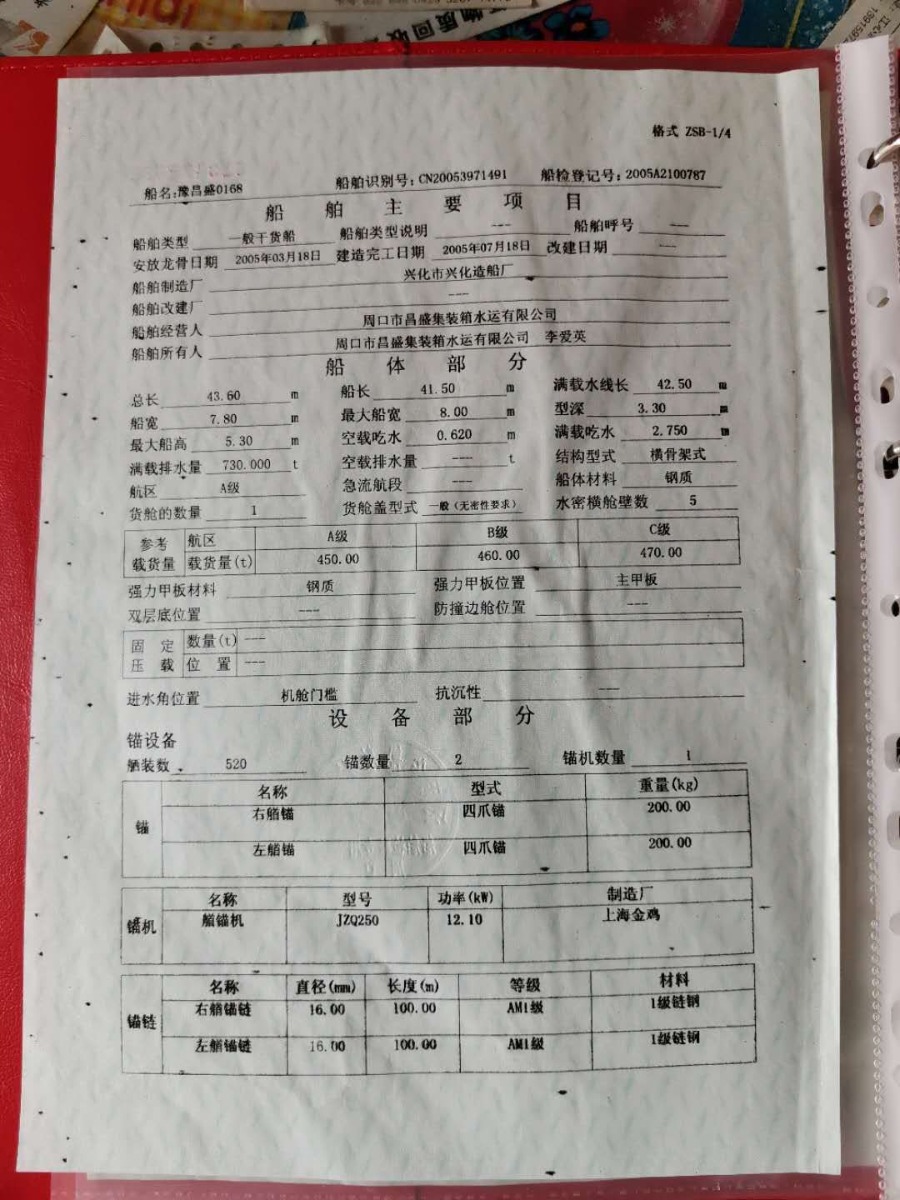 物质回收
格式 ZSB-1/4
船名:豫昌盛0168 船舶识别号:CN20053971491 船检登记号:2005A2100787
船舶主要项目
船舶类型 一般干货船 船舶类型说明 --- 船舶呼号 ---
安放龙骨日期 2005年03月18日 建造完工日期 2005年07月18日 改建日期 ---
船舶制造厂 兴化市兴化造船厂
船舶改建厂 ---
船舶经营人 周口市昌盛集装箱水运有限公司
船舶所有人 周口市昌盛集装箱水运有限公司 李爱英
船体部分
总长 43.60 m 船长 41.50 m 满载水线长 42.50 m
船宽 7.80 m 最大船宽 8.00 m 型深 3.30 m
最大船高 5.30 m 空载吃水 0.620 m 满载吃水 2.750 m
满载排水量 730.000 t 空载排水量 --- t 结构型式 横骨架式
航区 A级 急流航段 --- 船体材料 钢质
货舱的数量 1 货舱盖型式 一般(无密性要求) 水密横舱壁数 5
参考 航区 A级 B级 C级
载货量 载货量(t) 450.00 460.00 470.00
强力甲板材料 钢质 强力甲板位置 主甲板
双层底位置 --- 防撞边舱位置 ---
固定 数量(t) ---
压载 位置 ---
进水角位置 机舱门槛 抗沉性 ---
设备部分
锚设备
舾装数 520 锚数量 2 锚机数量 1
名称 型式 重量(kg)
锚 右艏锚 四爪锚 200.00
左艏锚 四爪锚 200.00
名称 型号 功率(kW) 制造厂
锚机 艏锚机 JZQ250 12.10 上海金鸡
名称 直径(mm) 长度(m) 等级 材料
锚链 右艏锚链 16.00 100.00 AM1级 1级链钢
左艏锚链 16.00 100.00 AM1级 1级链钢